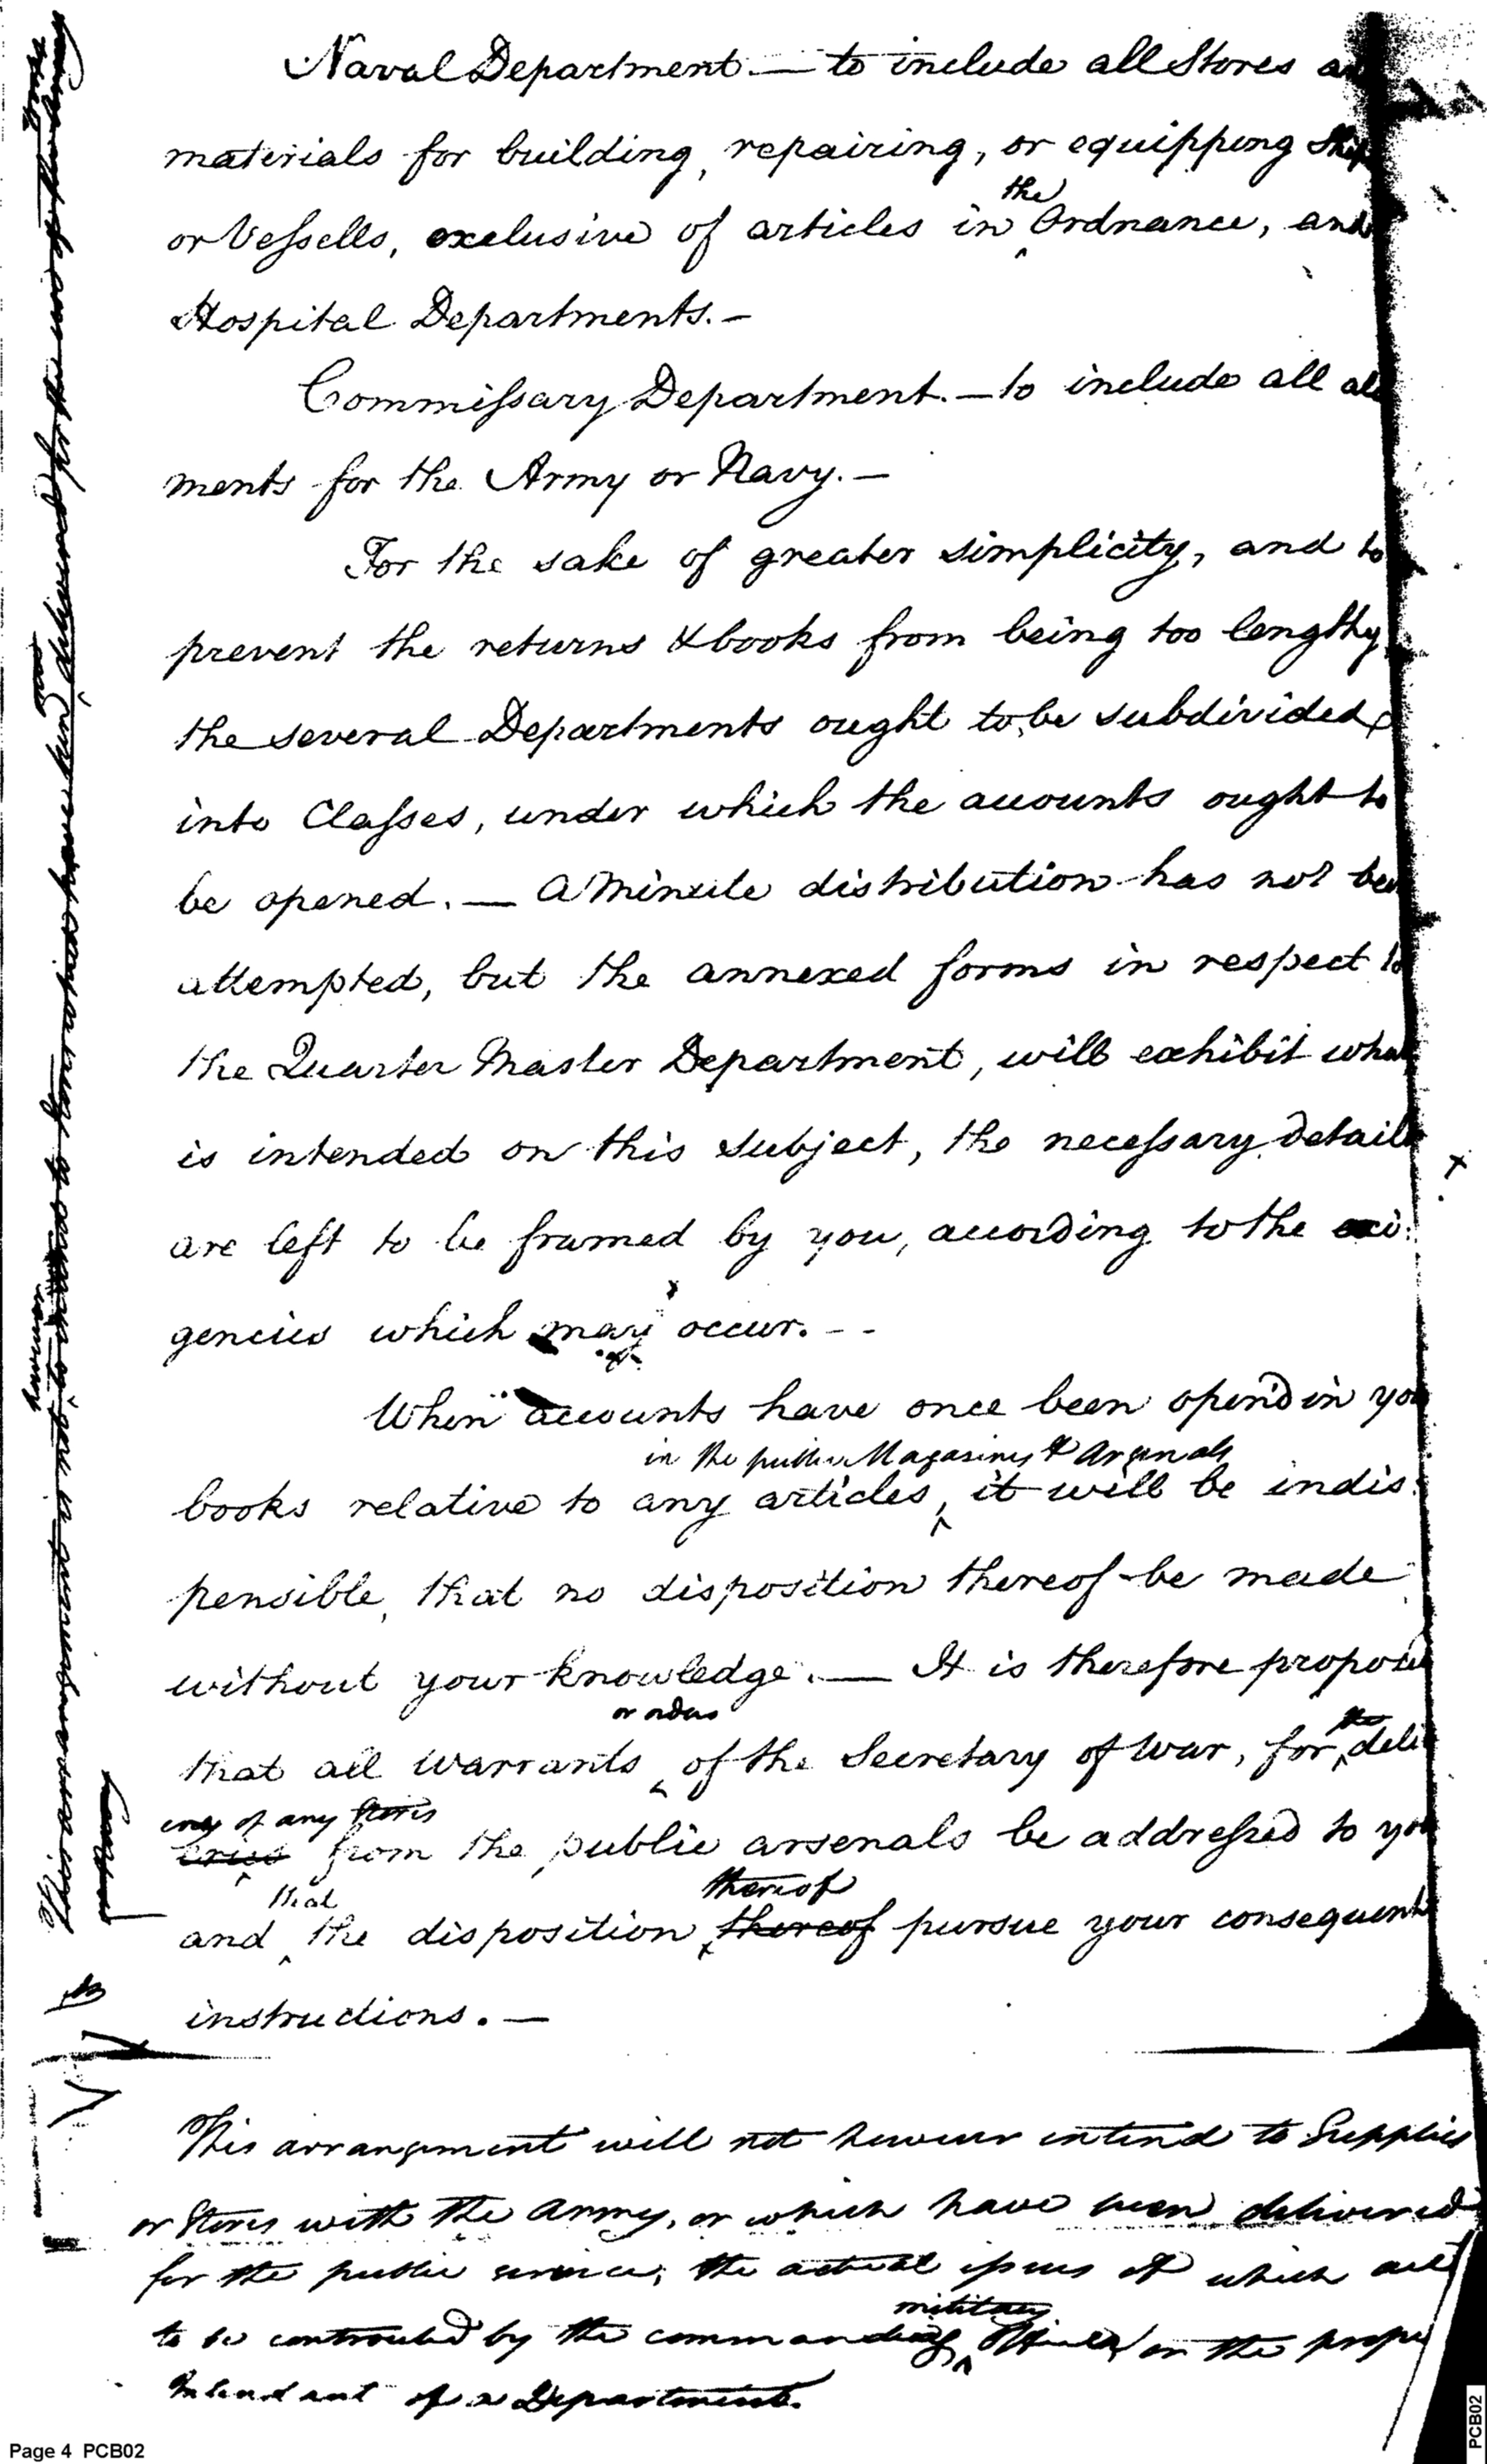 Naval Department. — to include all Stores a
materials for building, repairing, or equipping Ship
the
or Vessells, exclusive of articles in ^ Ordnance, and
Hospital Departments. —
Commissary Department. — to include all ali
ments for the Army or Navy. —
For the sake of greater simplicity, and to
prevent the returns & books from being too lengthy
the several Departments ought to be subdivided
into Classes, under which the accounts ought to
be opened. — A Minute distribution has not be
attempted, but the annexed forms in respect to
the Quarter Master Department, will exhibit what
is intended on this subject, the necessary details
are left to be framed by you, according to the exi:
gencies which may occur. - -
When accounts have once been open'd in you
in the public Magazines & Arsenals
books relative to any articles, ^ it will be indis:
pensible, that no disposition thereof be made
without your knowledge. — It is therefore propose
or orders
the
that all warrants ^ of the Secretary of War, for ^ deli
ery of any Stores
eries from the public arsenals be addressed to you
that
thereof
and ^ the disposition ^ thereof pursue your consequent
instructions. —
This arrangement will not however extend to Supplies
or Stores with the Army, or which have been delivered
for the public service, the actual issues of which are
military
to be controuled by the commanding ^ Officer, or the prope
Intendant of a Department.
This arrangement is not to
however
have been delivered for the use of the Army
Page 4 PCB02
PCB02